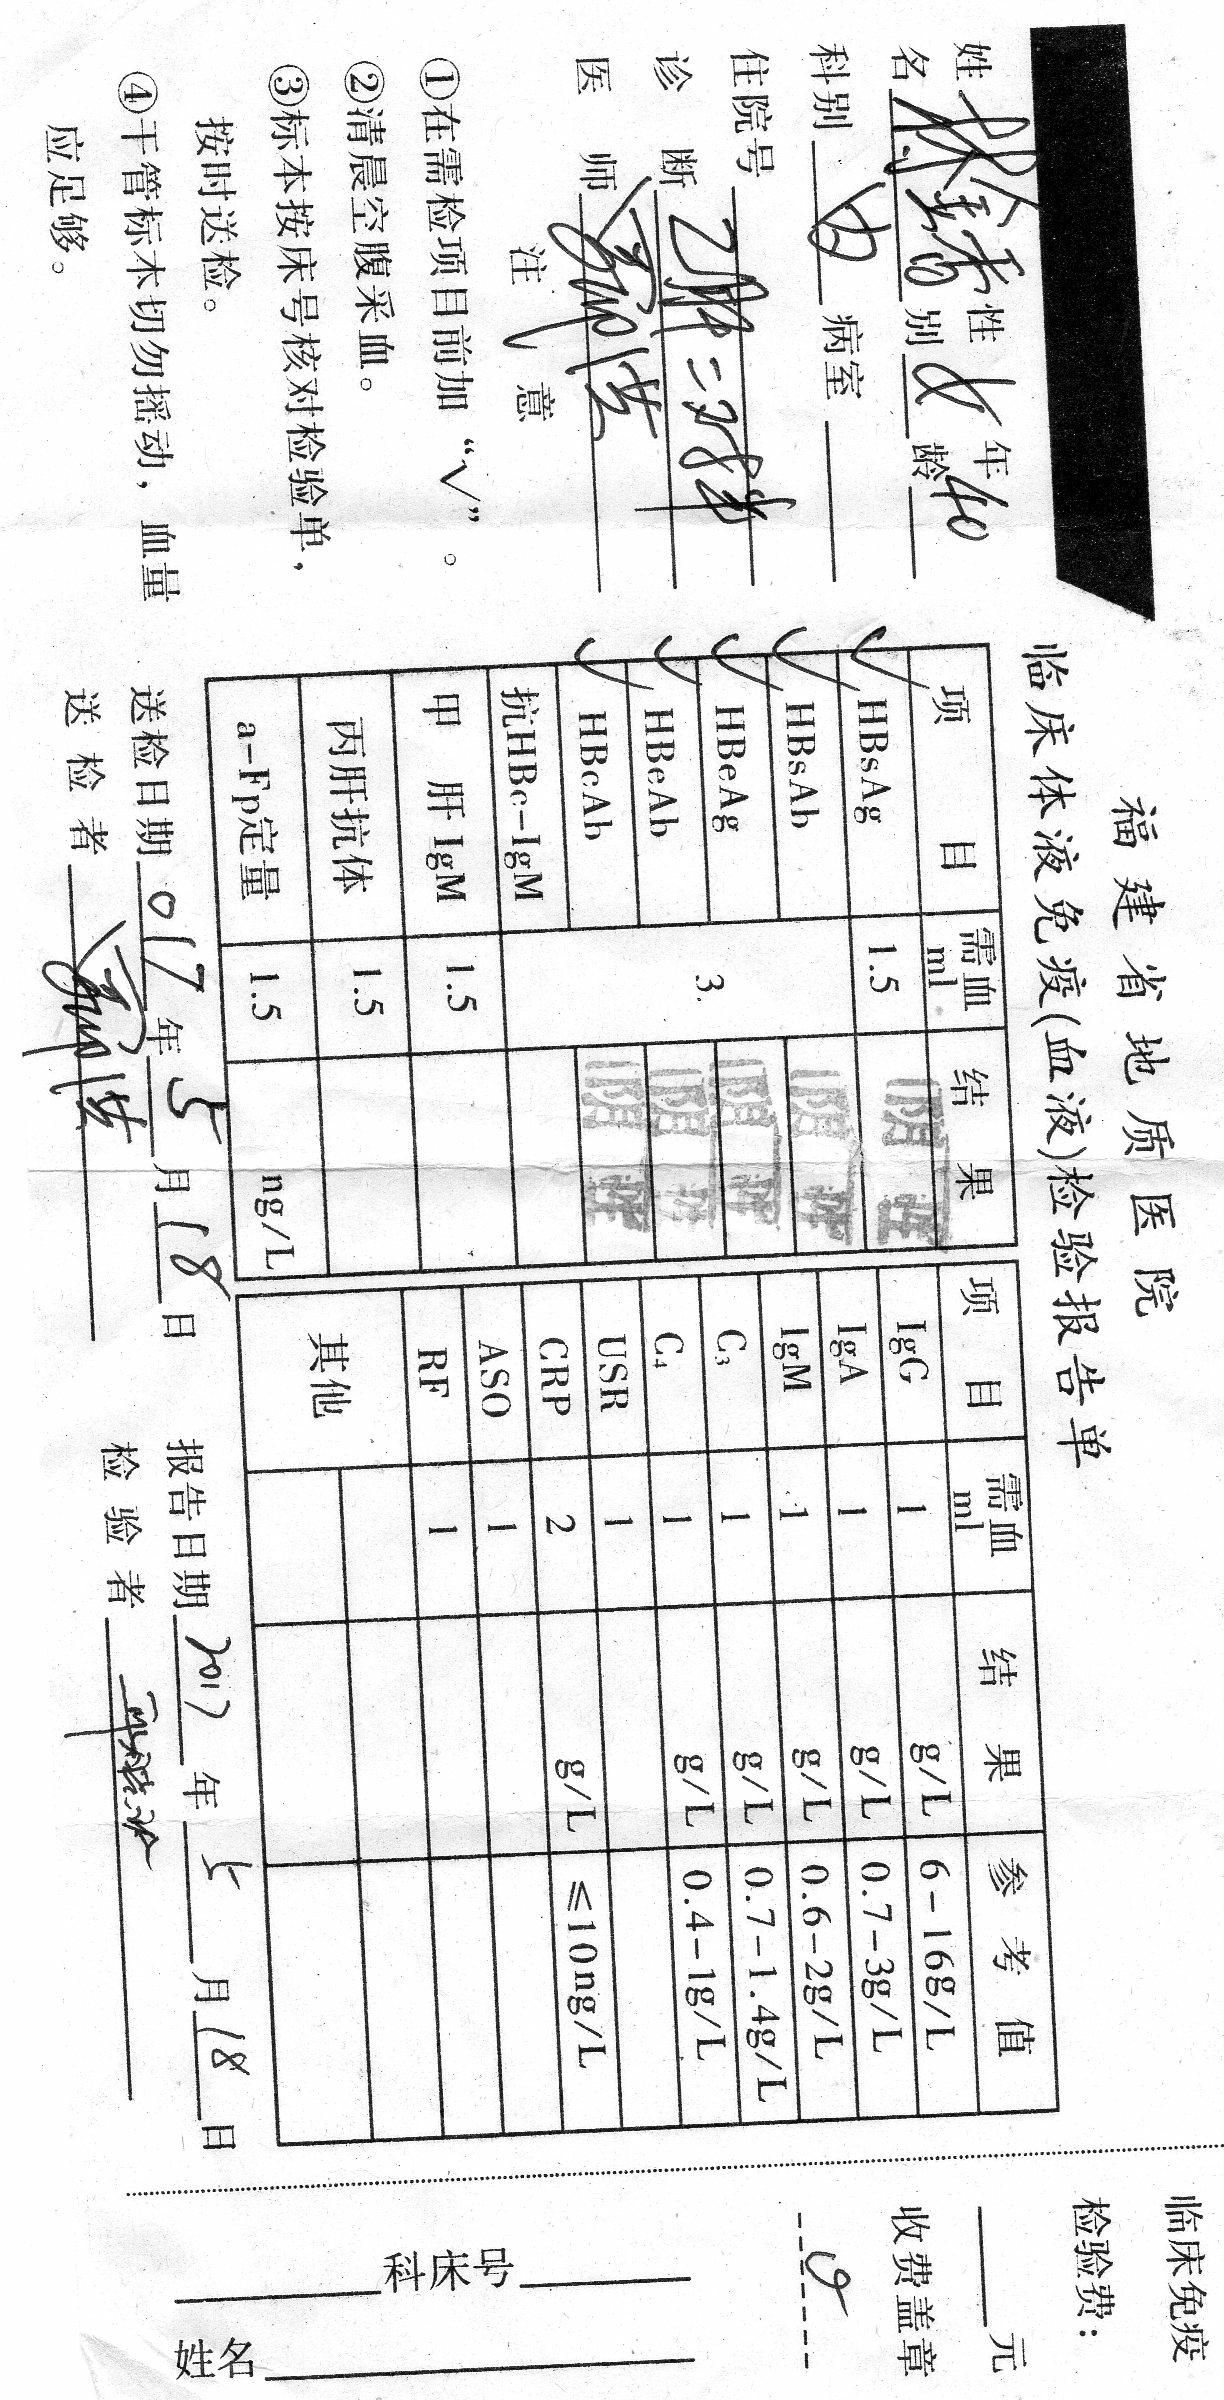 福建省地质医院
临床体液免疫(血液)检验报告单
姓名 性别 女 年龄 40
科别 内 病室
住院号
诊断 乙肝二对半
医师
注意
①在需检项目前加“√”。
②清晨空腹采血。
③标本按床号核对检验单，
按时送检。
④干管标本切勿摇动，血量
应足够。
项目 需血ml 结果
√ HBsAg 1.5 阴性
√ HBsAb 3. 阴性
√ HBeAg 阴性
√ HBeAb 阴性
√ HBcAb 阴性
抗HBc-IgM
甲肝IgM 1.5
丙肝抗体 1.5
a-Fp定量 1.5 ng/L
项目 需血ml 结果 参考值
IgG 1 g/L 6-16g/L
IgA 1 g/L 0.7-3g/L
IgM 1 g/L 0.6-2g/L
C₃ 1 g/L 0.7-1.4g/L
C₄ 1 g/L 0.4-1g/L
USR 1
CRP 2 g/L ≤10ng/L
ASO 1
RF 1
其他
送检日期 017年5月18日
送检者
报告日期 2017年5月18日
检验者
临床免疫
检验费：
元
收费盖章
科床号
姓名